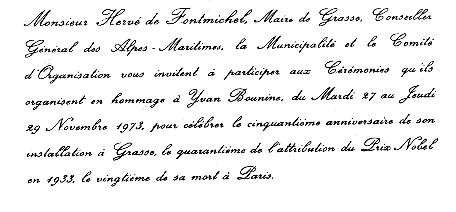 Monsieur Hervé de Fontmichel, Maire de Grasse, Conseiller
Général des Alpes-Maritimes, la Municipalité et le Comité
d'Organisation vous invitent à participer aux Cérémonies qu'ils
organisent en hommage à Yvan Bounine, du Mardi 27 au Jeudi
29 Novembre 1973, pour célébrer le cinquantième anniversaire de son
installation à Grasse, le quarantième de l'attribution du Prix Nobel
en 1933, le vingtième de sa mort à Paris.